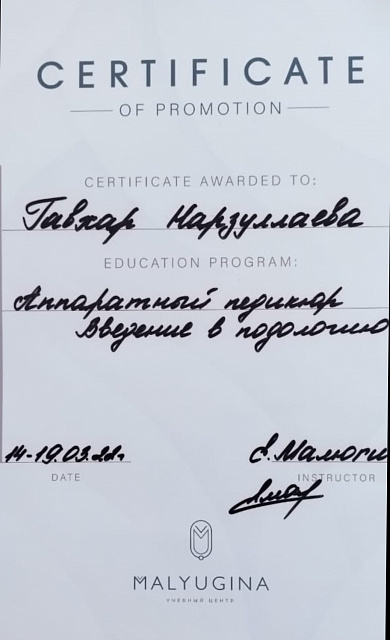 CERTIFICATE
OF PROMOTION
CERTIFICATE AWARDED TO:
Гавхар Нарзуллаева
EDUCATION PROGRAM:
Аппаратный педикюр
Введение в подологию
14-19.03.22г.
DATE
Е. Малюги
INSTRUCTOR
MALYUGINA
УЧЕБНЫЙ ЦЕНТР